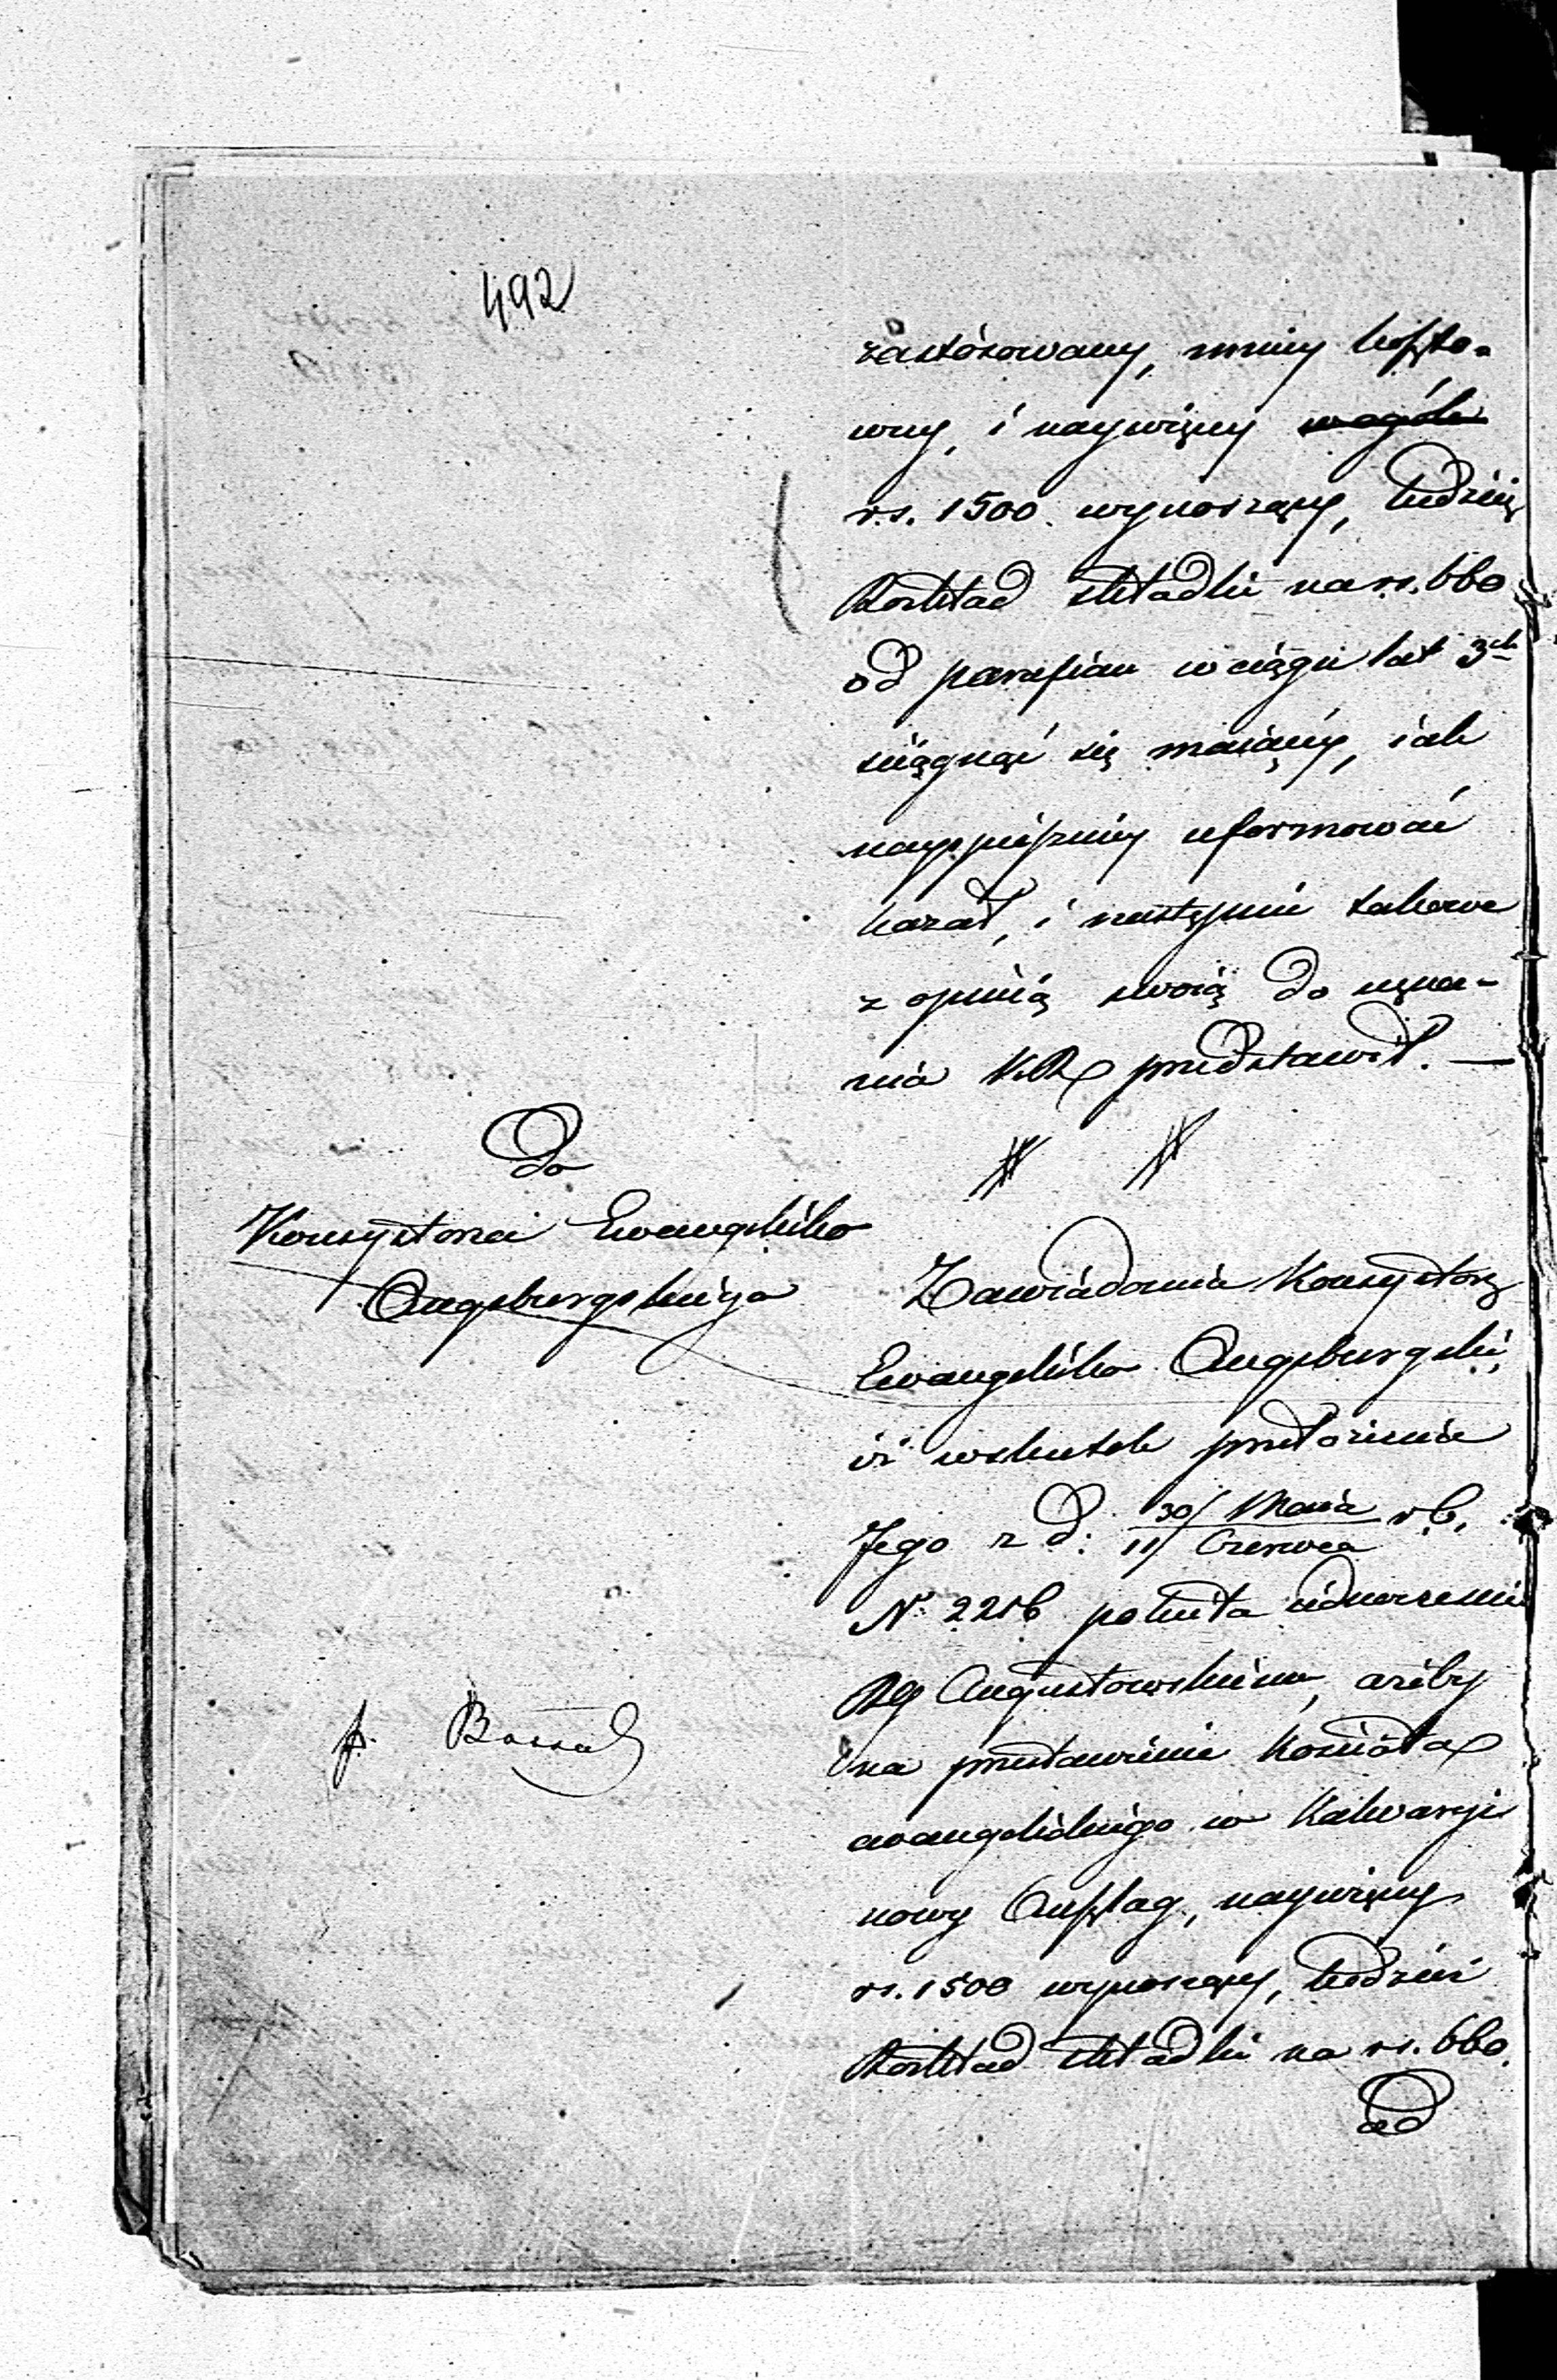 492
zastósowany, mniey koszto-
wny, i naywięcey ~~wogóle~~
rs. 1500. wynoszący, tudzież
Rozkład składki na rs. 660
od parafian w ciągu lat 3ch
ściągnąć się maiącey, iak
nayspieszniey uformować
kazał, i następnie takowe
z opinią swoią do uzna-
nia KR przedstawił. —
Do
Konsystorza Ewangelicko
Augsburgskiego
Zawiadamia Konsystorz
Ewangelicko Augsburgski,
iż wskutek przełożenia
Jego z d: 30/11 Maia/Czerwca r.b.
No 2216 poleciła iednocześnie
RG Augustowskiemu, ażeby
na przestawienie Kościoła
ewangelickiego w Kalwaryi
nowy Anszlag, naywięcey
rs. 1500 wynoszący, tudzież
Rozkład składki na rs. 660.
od